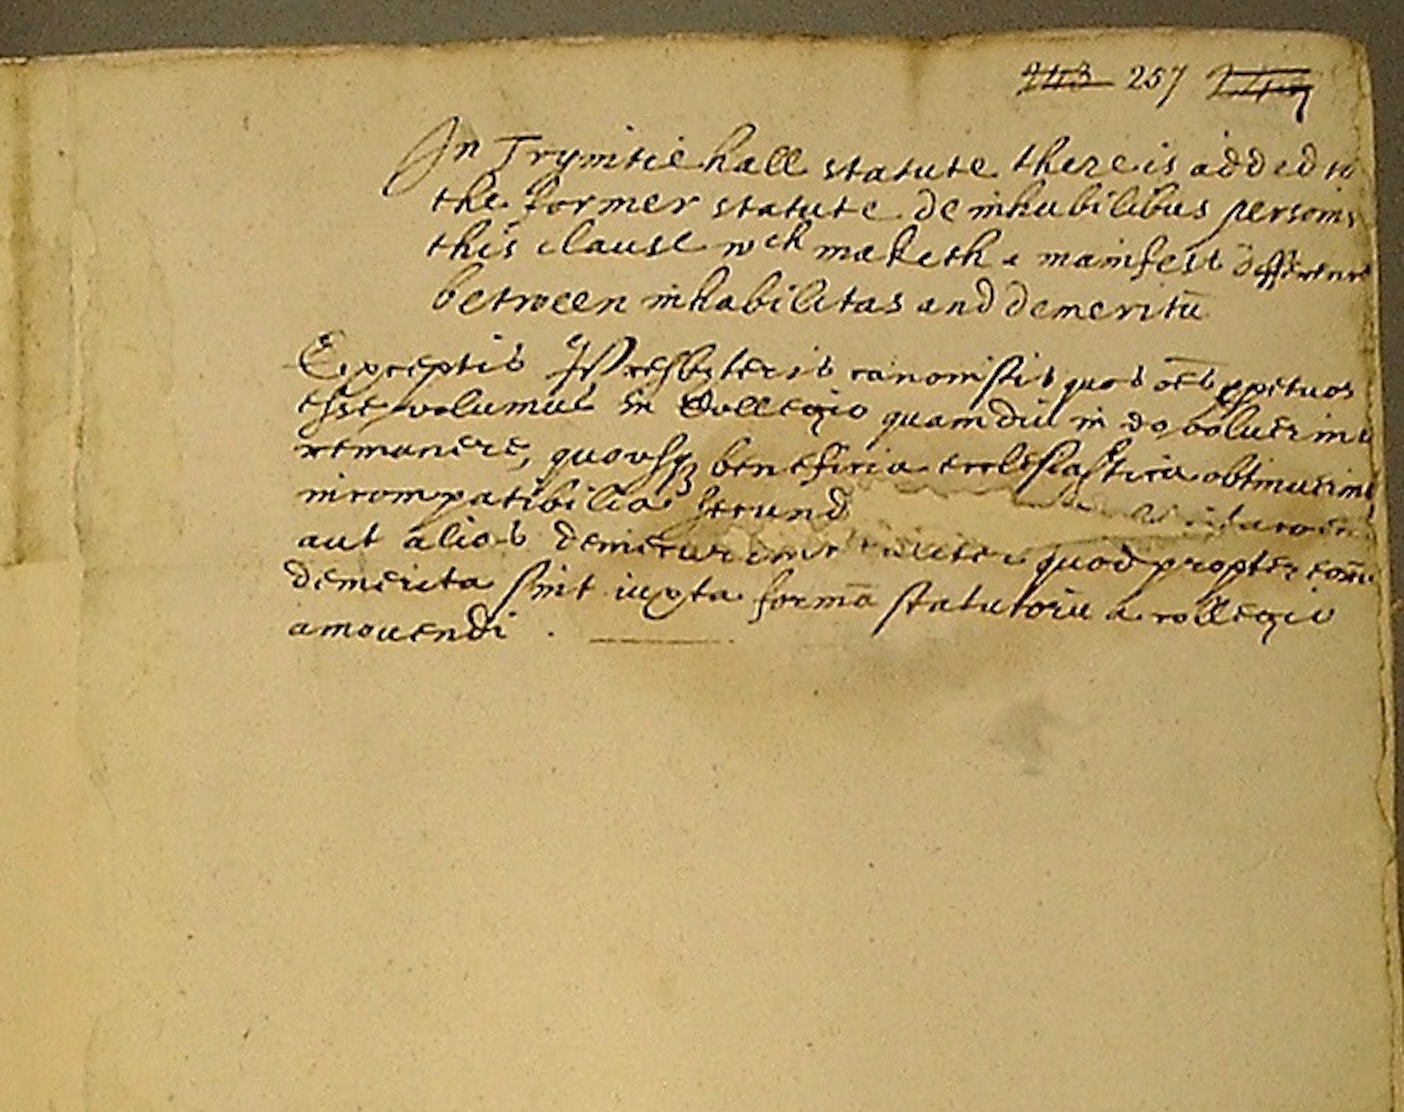 243 257 249
In Trynitie hall statute there is added to
the former statute de inhabilibus personis
this clause wch maketh a manifest difference
betweene inhabilitas and demeritū
Exceptis Presbiteris canonistis quos oēs ppetuos
esse volumus in Collegio quamdiu in eo voluerint
remanere, quousqz beneficia ecclesiastica obtinuerint
incompatibilia secund
aut alias demeruerint taliter quod propter eorū
demerita sint iuxta formā statutorū a collegio
amouendi .